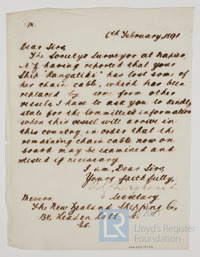 6th February, 1891
Dear Sirs,
The Society's Surveyor at Napier,
N.Z. having reported that your
Ship "Rangatiki" has lost some of
her chain cable, which has been
replaced by some from other
vessels I have to ask you to kindly
state for the Committee's information
when this vessel will arrive in
this country in order that the
remaining chain cable now on
board may be examined and
tested if necessary
I am, Dear Sirs,
Yours faithfully,
Secretary
Messrs
The New Zealand Shipping Co.
Leaden Hall St.
Lloyd's Register
Foundation